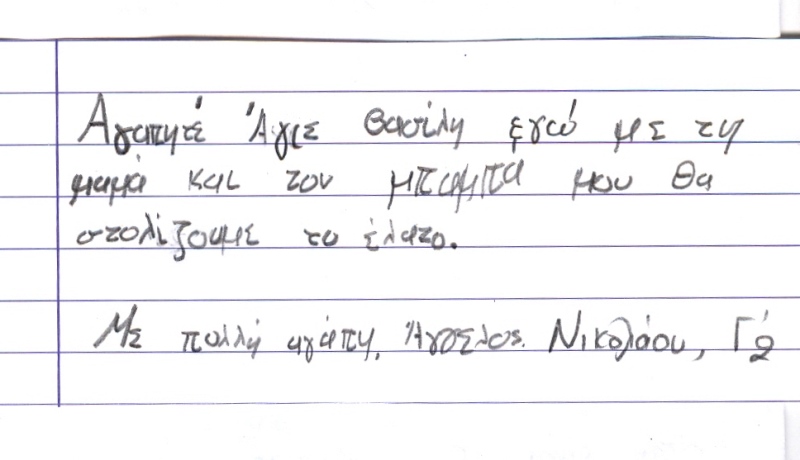 Αγαπητέ Άγιε βασίλη εγώ με τη
μαμά και τον μπαμπά μου θα
στολίζουμε το έλατο.
Με πολλή αγάπη, Άγγελος Νικολάου, Γ΄2